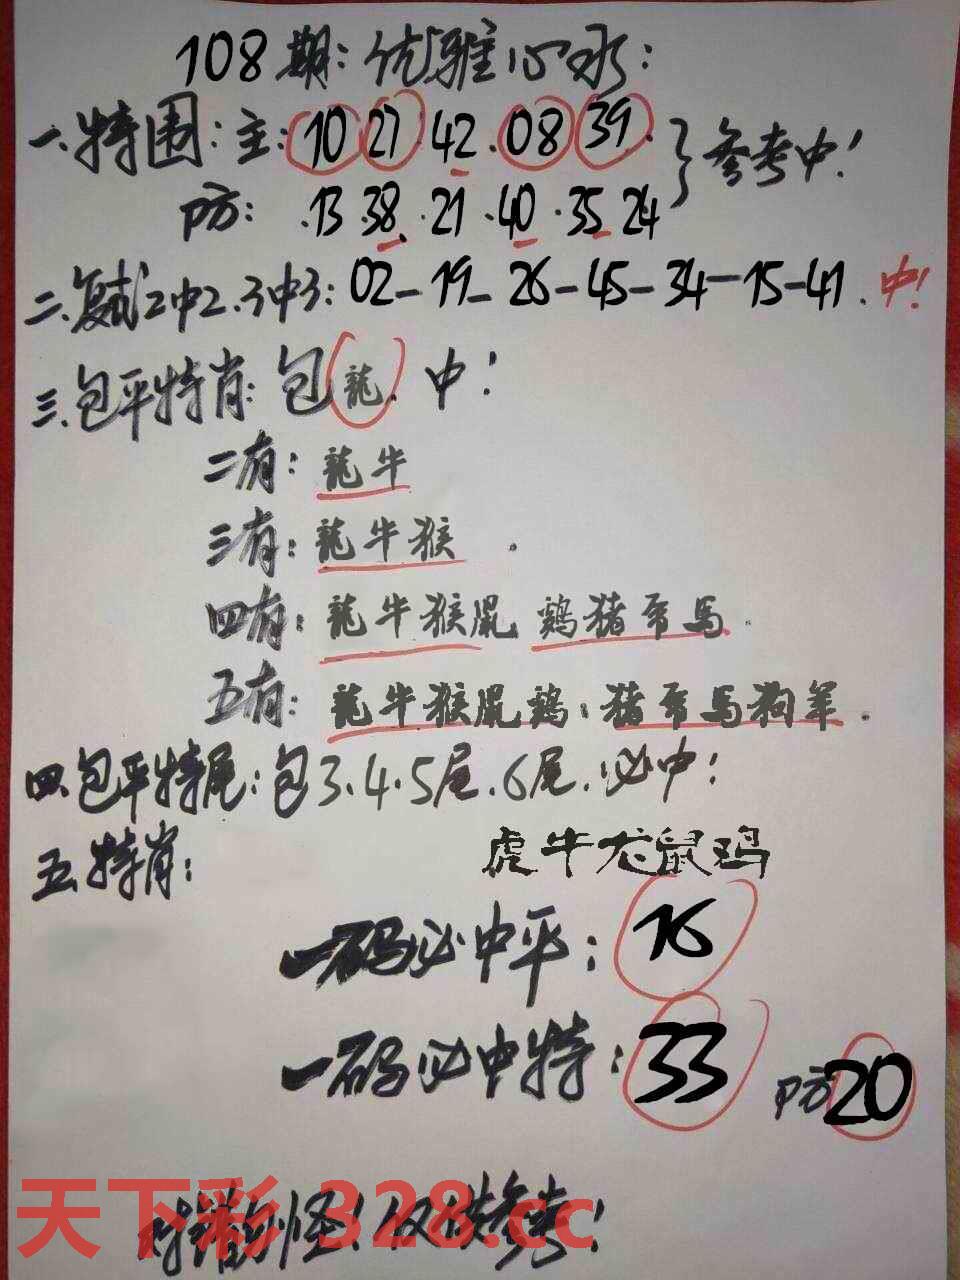 108期:优雅心水:
一.特围:主:10 27 42.08 39.}参考中!
防:.13 38.21.40.35 24
二.复试2中2.3中3:02-19-26-45-34-15-41.中!
三.包平特肖:包龍.中!
二有:龍牛
三有:龍牛猴.
四有:龍牛猴鼠 鷄猪馬.
五有:龍牛猴鼠鷄.猪馬狗羊.
四.包平特尾:包3.4.5尾.6尾.必中!
五.特肖:
虎牛龙鼠鸡
一码必中平:16
一码必中特:33 防20
错勿怪!仅供参考!
天下彩 328.cc